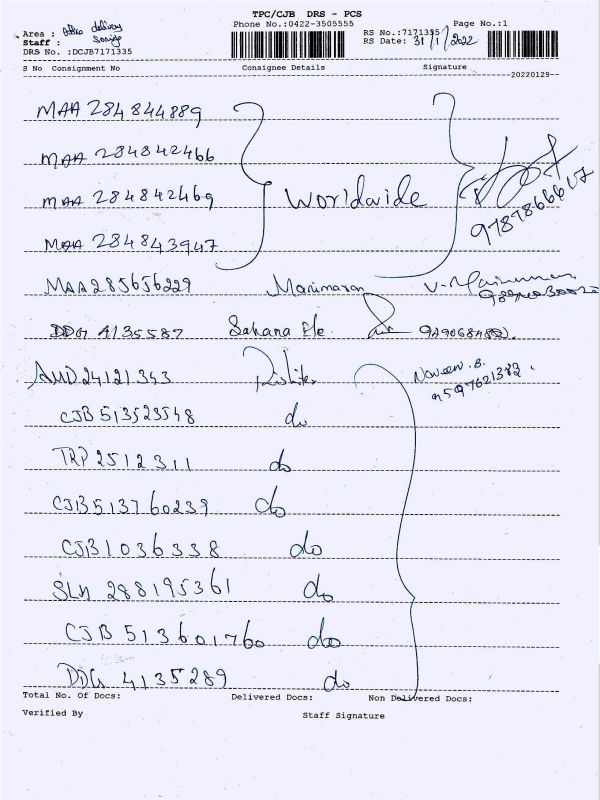 TPC/CJB DRS - PCS
Phone No.:0422-3505555
Page No.:1
Area : delivery
Staff :
RS No.:7171335
DRS No :DCJB7171335
RS Date: 31/1/2022
S No Consignment No Consignee Details Signature
20220129
MAA 284844889
MAA 284842466
MAA 284842469 Worldwide
9787866617
MAA 284843947
MAA285656229 Manimaran V.
DDG 4135587 Sahana Ele.
AMD24121343 Naveen.B.
9597621382.
CJB513523548 do
TRP2512311 do
CJB513760239 do
CJB1036338 do
SLM 288195361 do
CJB 513601760 do
DDG 4135289 do
Total No. Of Docs: Delivered Docs: Non Delivered Docs:
Verified By Staff Signature